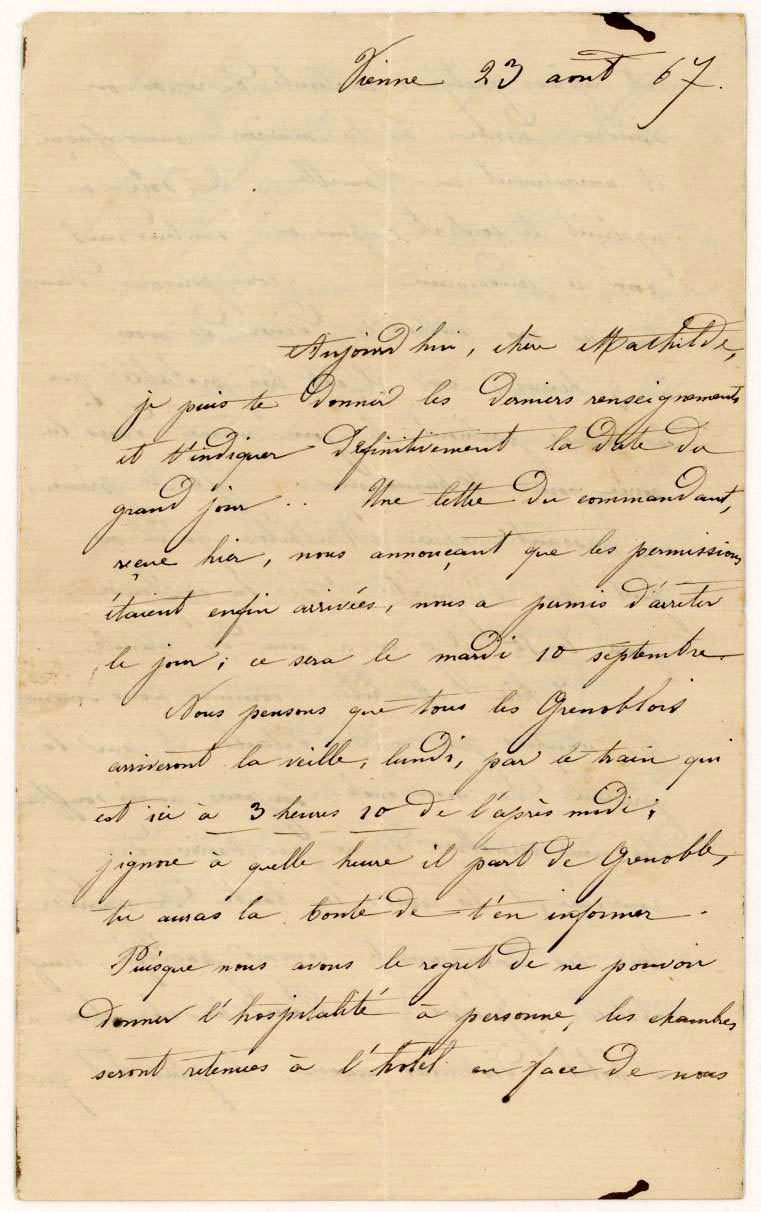 Vienne 23 août 67.
Aujourd'hui, chère Mathilde,
je puis te donner les derniers renseignements
et t'indiquer définitivement la date du
grand jour .. Une lettre du commandant,
reçue hier, nous annonçant que les permissions
étaient enfin arrivées, nous a permis d'arrêter
le jour; ce sera le mardi 10 septembre.
Nous pensons que tous les Grenoblois
arriveront la veille, lundi, par le train qui
est ici à 3 heures 10 de l'après midi;
j'ignore à quelle heure il part de Grenoble,
tu auras la bonté de t'en informer.
Puisque nous avons le regret de ne pouvoir
donner l'hospitalité à personne, les chambres
seront retenues à l'hotel en face de nous